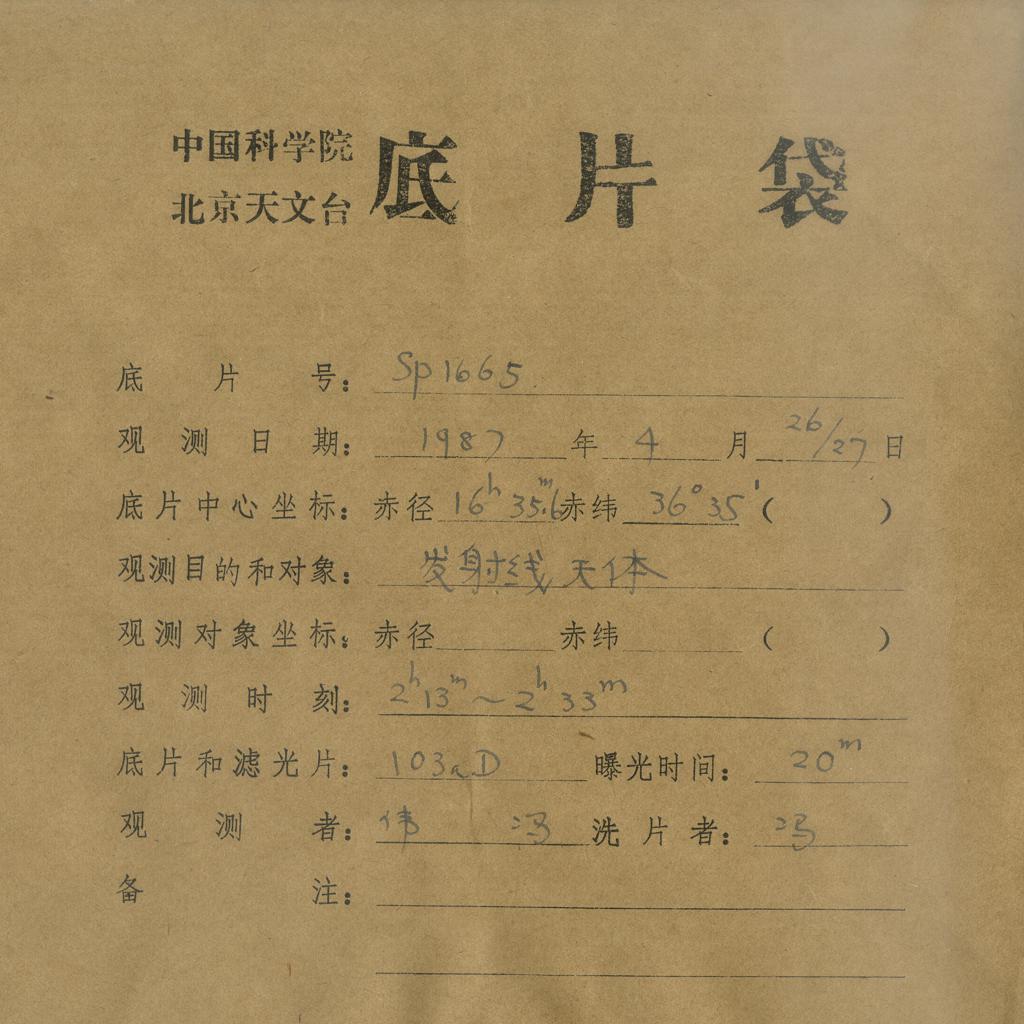 中国科学院
北京天文台
底片袋
底片号：Sp1665
观测日期：1987年4月26/27日
底片中心坐标：赤径16h35.6m赤纬36°35′（ ）
观测目的和对象：发射线天体
观测对象坐标：赤径 赤纬 （ ）
观测时刻：2h13m～2h33m
底片和滤光片：103aD 曝光时间：20m
观测者：伟 冯 洗片者：冯
备注：